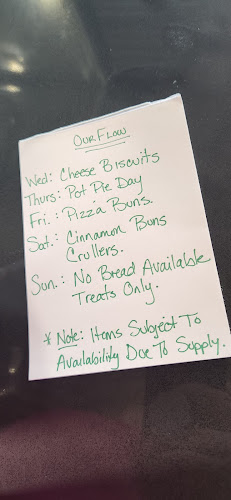 Our Flow
Wed: Cheese Biscuits
Thurs: Pot Pie Day
Fri.: Pizza Buns.
Sat.: Cinnamon Buns
Crullers.
Sun.: No Bread Available
Treats Only.
* Note: Items Subject To
Availability Due To Supply.